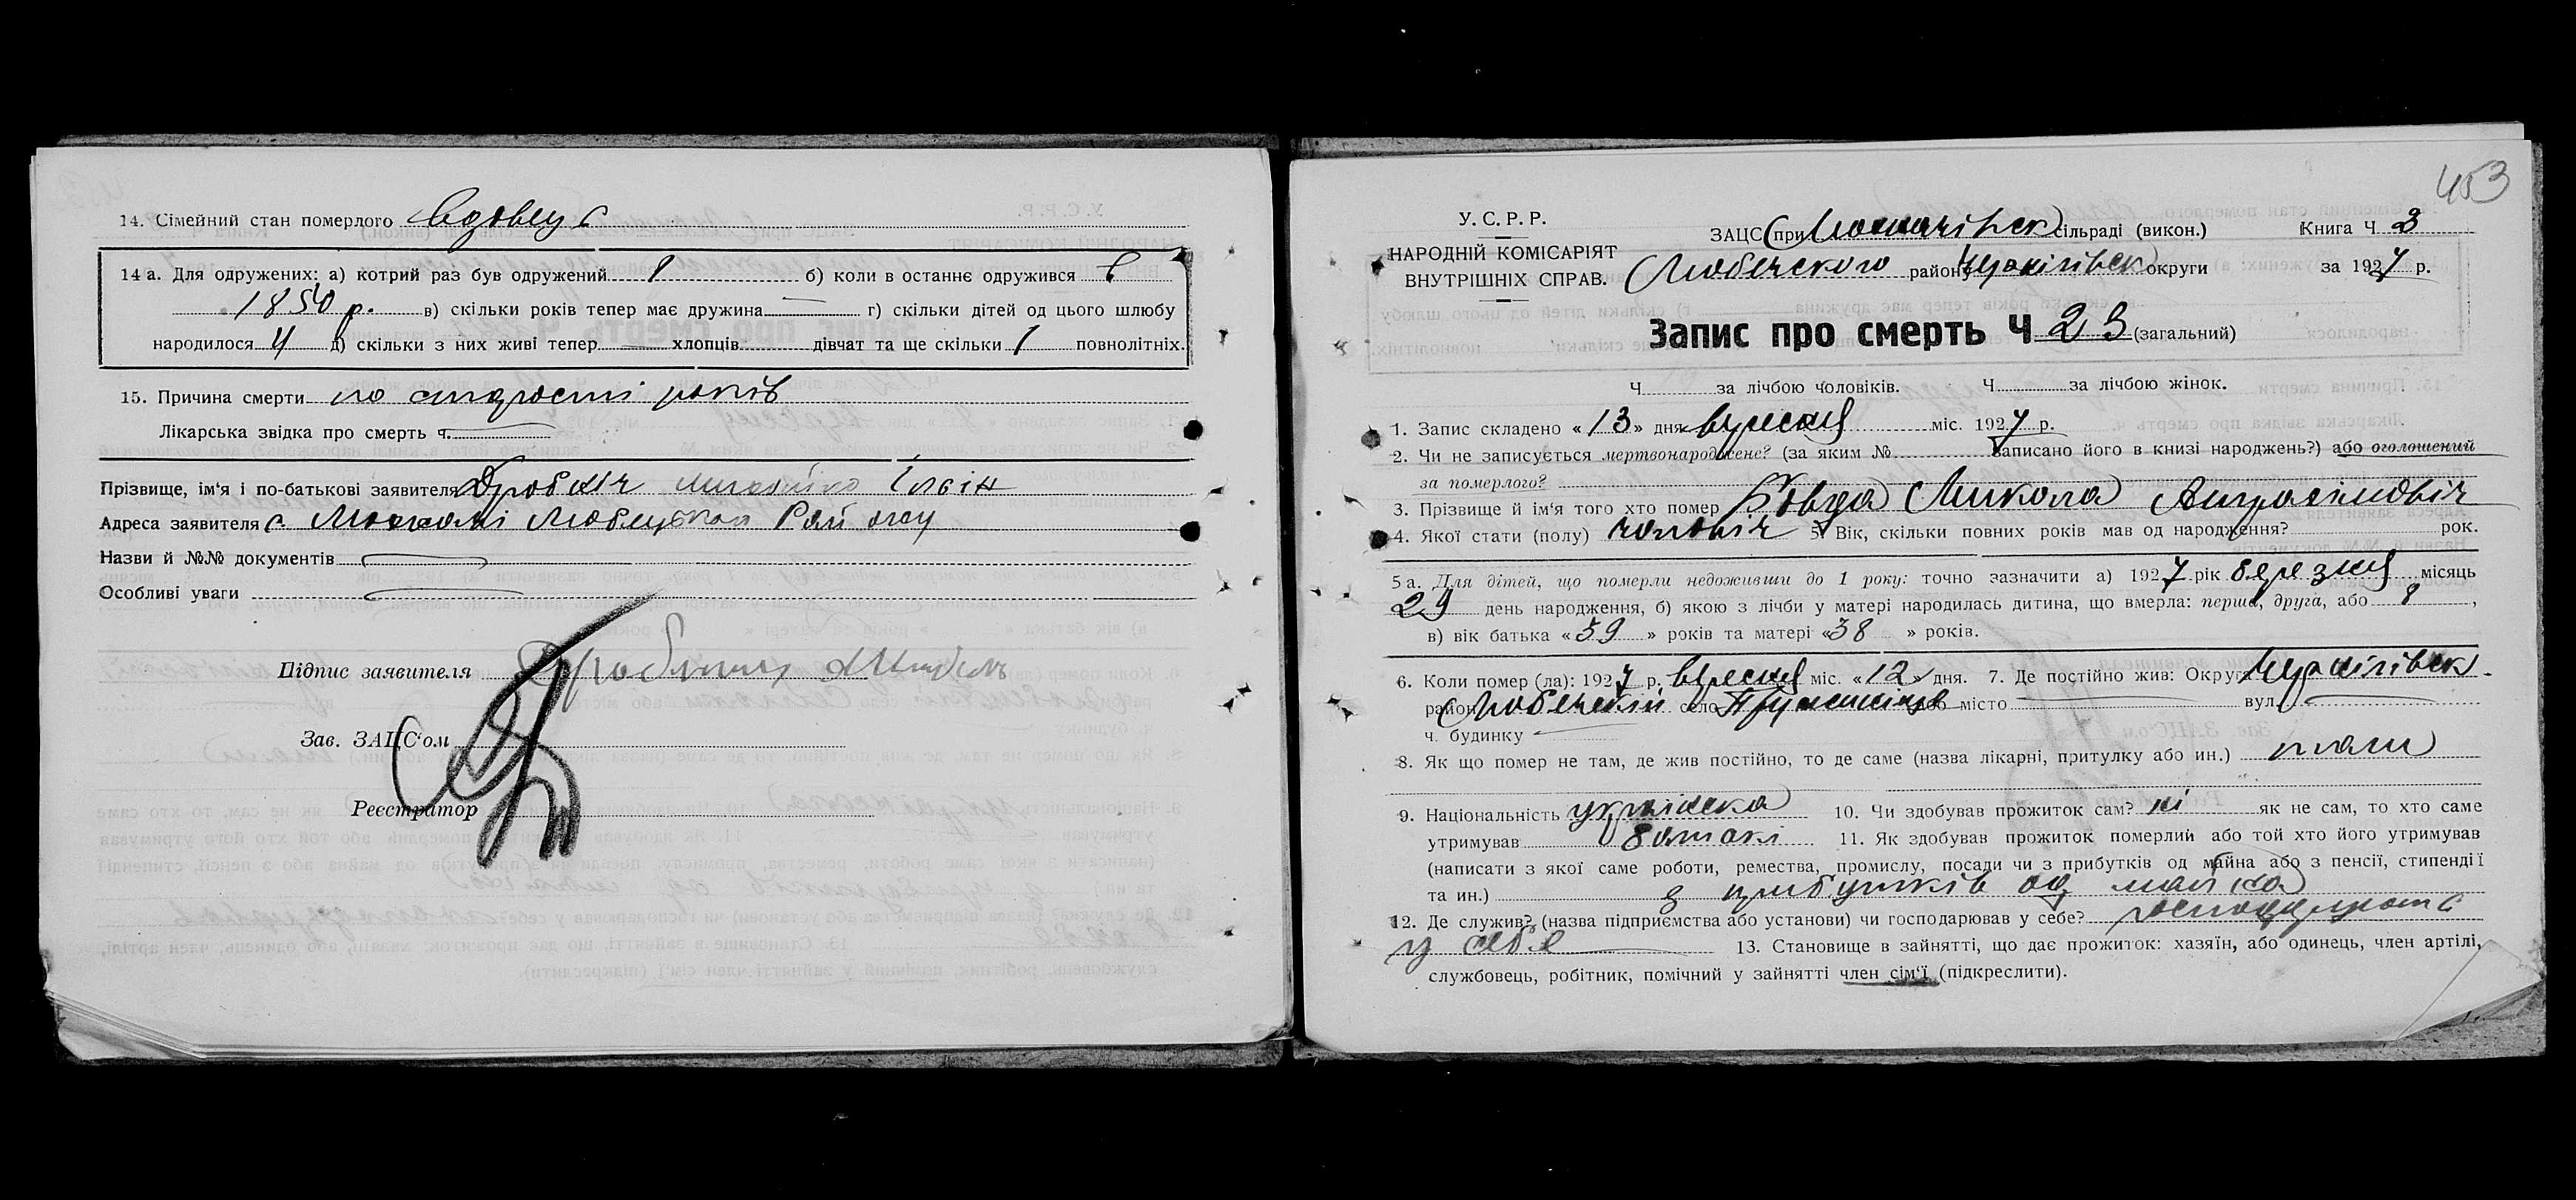 14. Сімейний стан померлого вдовец
14 а. Для одружених: а) котрий раз був одружений 1 б) коли в останнє одружився в
1850 р. в) скільки років тепер має дружина — г) скільки дітей од цього шлюбу
народилося 4 д) скільки з них живі тепер — хлопців дівчат та ще скільки 1 повнолітніх.
15. Причина смерти по старости років
Лікарська звідка про смерть ч.
Прізвище, ім'я і по-батькові заявителя
Адреса заявителя с.
Назви й №№ документів —
Особливі уваги —
Підпис заявителя
Зав. ЗАЦС'ом
Реєстратор
453
У. С. Р. Р.
НАРОДНІЙ КОМІСАРІЯТ
ВНУТРІШНІХ СПРАВ.
ЗАЦС при сільраді (викон.) Книга Ч 3
Любечского району Чернігівск округи за 1927 р.
Запис про смерть Ч 23 (загальний)
Ч за лічбою чоловіків. Ч за лічбою жінок.
1. Запис складено « 13 » дня вресня міс. 1927 р.
2. Чи не записується мертвонароджене? (за яким № записано його в книзі народжень?) або оголошений
за померлого?
3. Прізвище й ім'я того хто помер Микола
4. Якої стати (полу) чоловіч 5. Вік, скільки повних років мав од народження? рок.
5 а. Для дітей, що померли недоживши до 1 року: точно зазначити а) 1927 рік березня місяць
29 день народження, б) якою з лічби у матері народилась дитина, що вмерла: перша, друга, або ,
в) вік батька « 39 » років та матері « 38 » років.
6. Коли помер (ла): 1927 р. вресня міс. « 12 » дня. 7. Де постійно жив: Округ Чернігівск.
район Любечский село або місто — вул. —
ч. будинку —
8. Як що помер не там, де жив постійно, то де саме (назва лікарні, притулку або ин.) там
9. Національність українска 10. Чи здобував прожиток сам? ні як не сам, то хто саме
утримував 11. Як здобував прожиток померлий або той хто його утримував
(написати з якої саме роботи, ремества, промислу, посади чи з прибутків од майна або з пенсії, стипендії
та ин.) з прибутків од майна
12. Де служив? (назва підприємства або установи) чи господарював у себе?
у себе 13. Становище в зайнятті, що дає прожиток: хазяїн, або одинець, член артілі,
службовець, робітник, помічний у зайнятті член сім'ї (підкреслити).